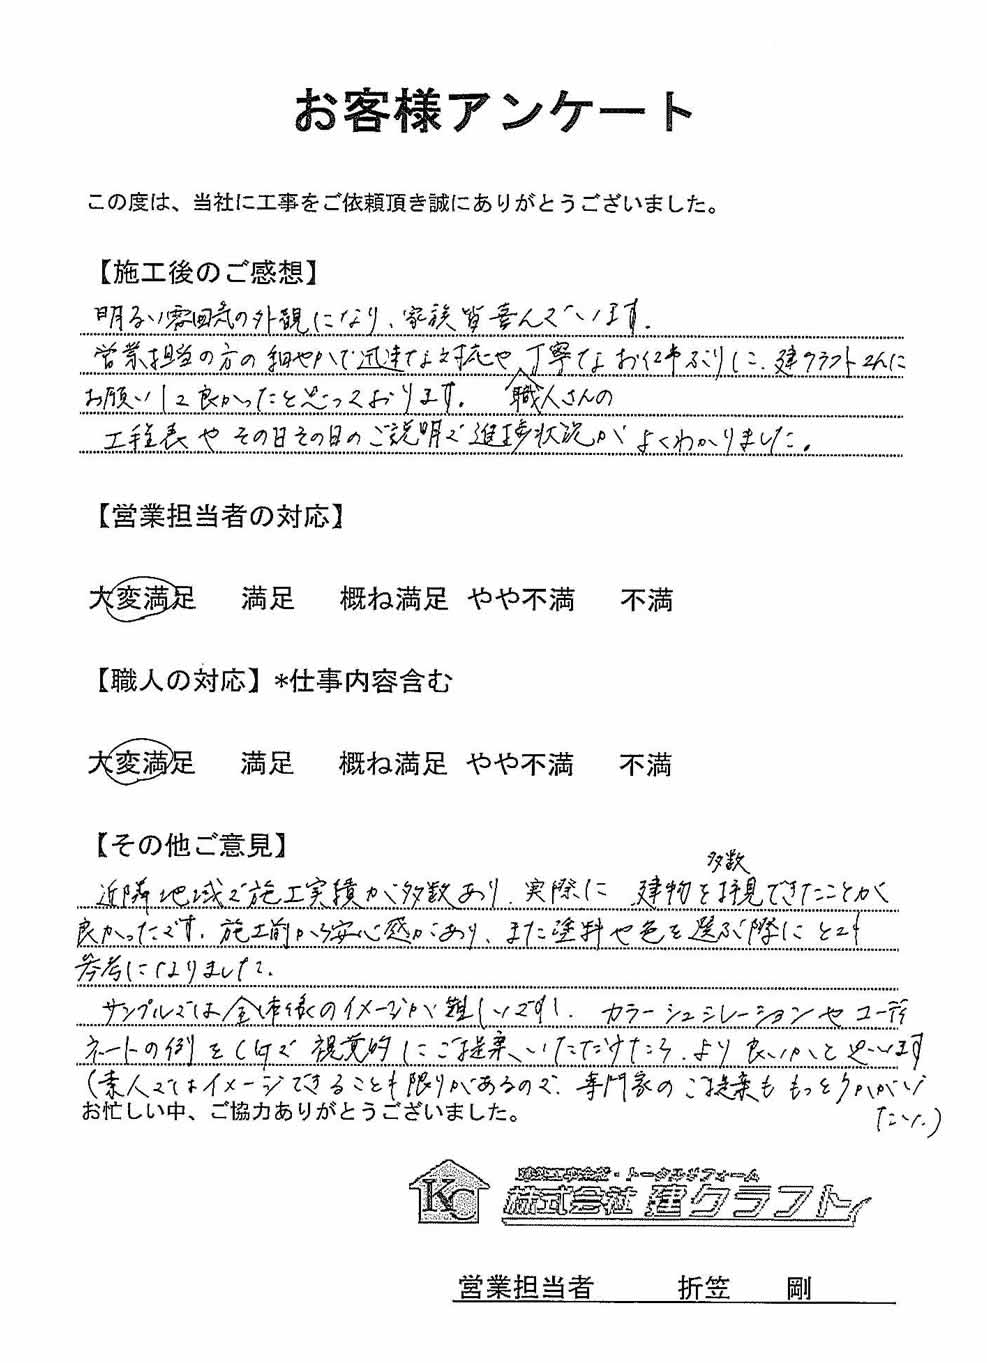 お客様アンケート
この度は、当社に工事をご依頼頂き誠にありがとうございました。
【施工後のご感想】
明るい雰囲気の外観になり、家族皆喜んでいます。
営業担当の方の細やかで迅速な対応や丁寧なお仕事ぶりに、建クラフトさんに
お願いして良かったと思っております。 職人さんの
工程表やその日その日のご説明で進捗状況がよくわかりました。
【営業担当者の対応】
大変満足 満足 概ね満足 やや不満 不満
【職人の対応】*仕事内容含む
大変満足 満足 概ね満足 やや不満 不満
【その他ご意見】
多数
近隣地域で施工実績が多数あり、実際に 建物を拝見できたことが
良かったです。施工前から安心感があり、また塗料や色を選ぶ際にとても
参考になりました。
サンプルでは全体像のイメージが難しいですし、カラーシュミレーションやコーディ
ネートの例をCGで視覚的にご提案いただけたら、より良いかと思います
(素人ではイメージできることも限りがあるので、専門家のご提案ももっとうかがい
お忙しい中、ご協力ありがとうございました。
たい。)
KC
・トータルリフォーム
株式会社 建クラフト
営業担当者 折笠 剛